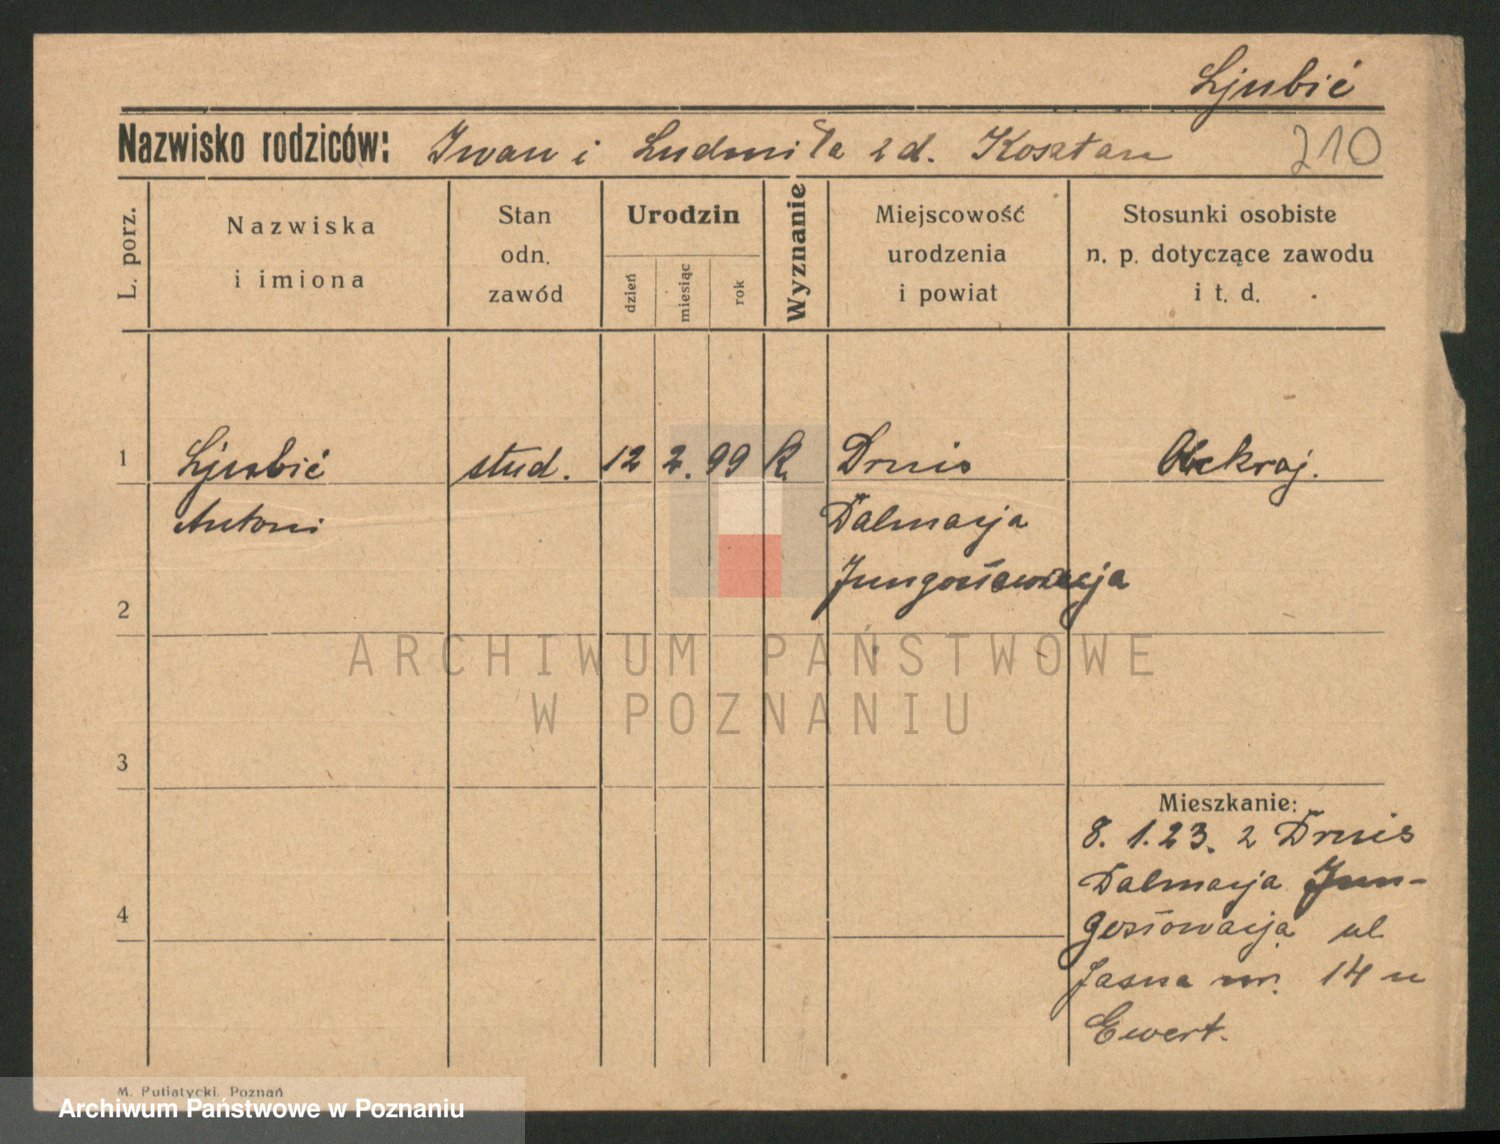 Ljubić
Nazwisko rodziców: Iwan i Ludmiła z d. Kosztan 210
L. porz.
Nazwiska
i imiona
Stan
odn.
zawód
Urodzin
dzień
miesiąc
rok
Wyznanie
Miejscowość
urodzenia
i powiat
Stosunki osobiste
n. p. dotyczące zawodu
i t. d.
1 Ljubić stud. 12 2. 99 R. Drnis Obckraj.
Antoni Dalmacja
Jungosławacja
2
ARCHIWUM PAŃSTWOWE
W POZNANIU
3
Mieszkanie:
8. 1. 23. z Drnis
Dalmacja Jun-
4
gosłowacja ul
Jasna nr. 14 u
Ewert.
M. Putiatycki, Poznań
Archiwum Państwowe w Poznaniu